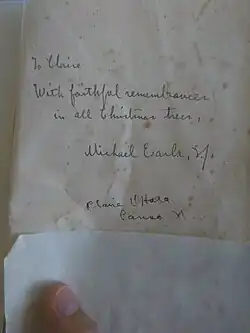 To Claire
With faithful remembrances
in all Christmas trees,
Michael Earls, S.J.
Claire O'Hara